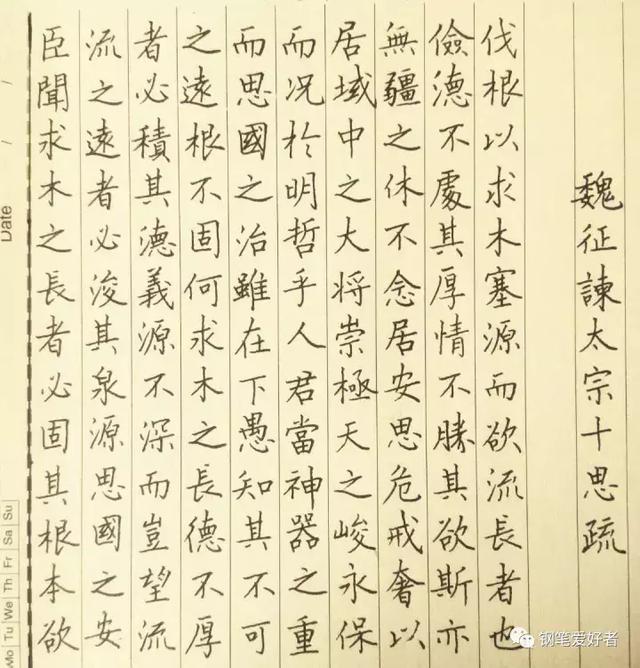 魏征諫太宗十思疏
臣聞求木之長者必固其根本欲
流之遠者必浚其泉源思國之安
者必積其德義源不深而豈望流
之遠根不固何求木之長德不厚
而思國之治雖在下愚知其不可
而况於明哲乎人君當神器之重
居域中之大將崇極天之峻永保
無疆之休不念居安思危戒奢以
儉德不處其厚情不勝其欲斯亦
伐根以求木塞源而欲流長者也
Date / /
Mo Tu We Th Fr Sa Su
钢笔爱好者